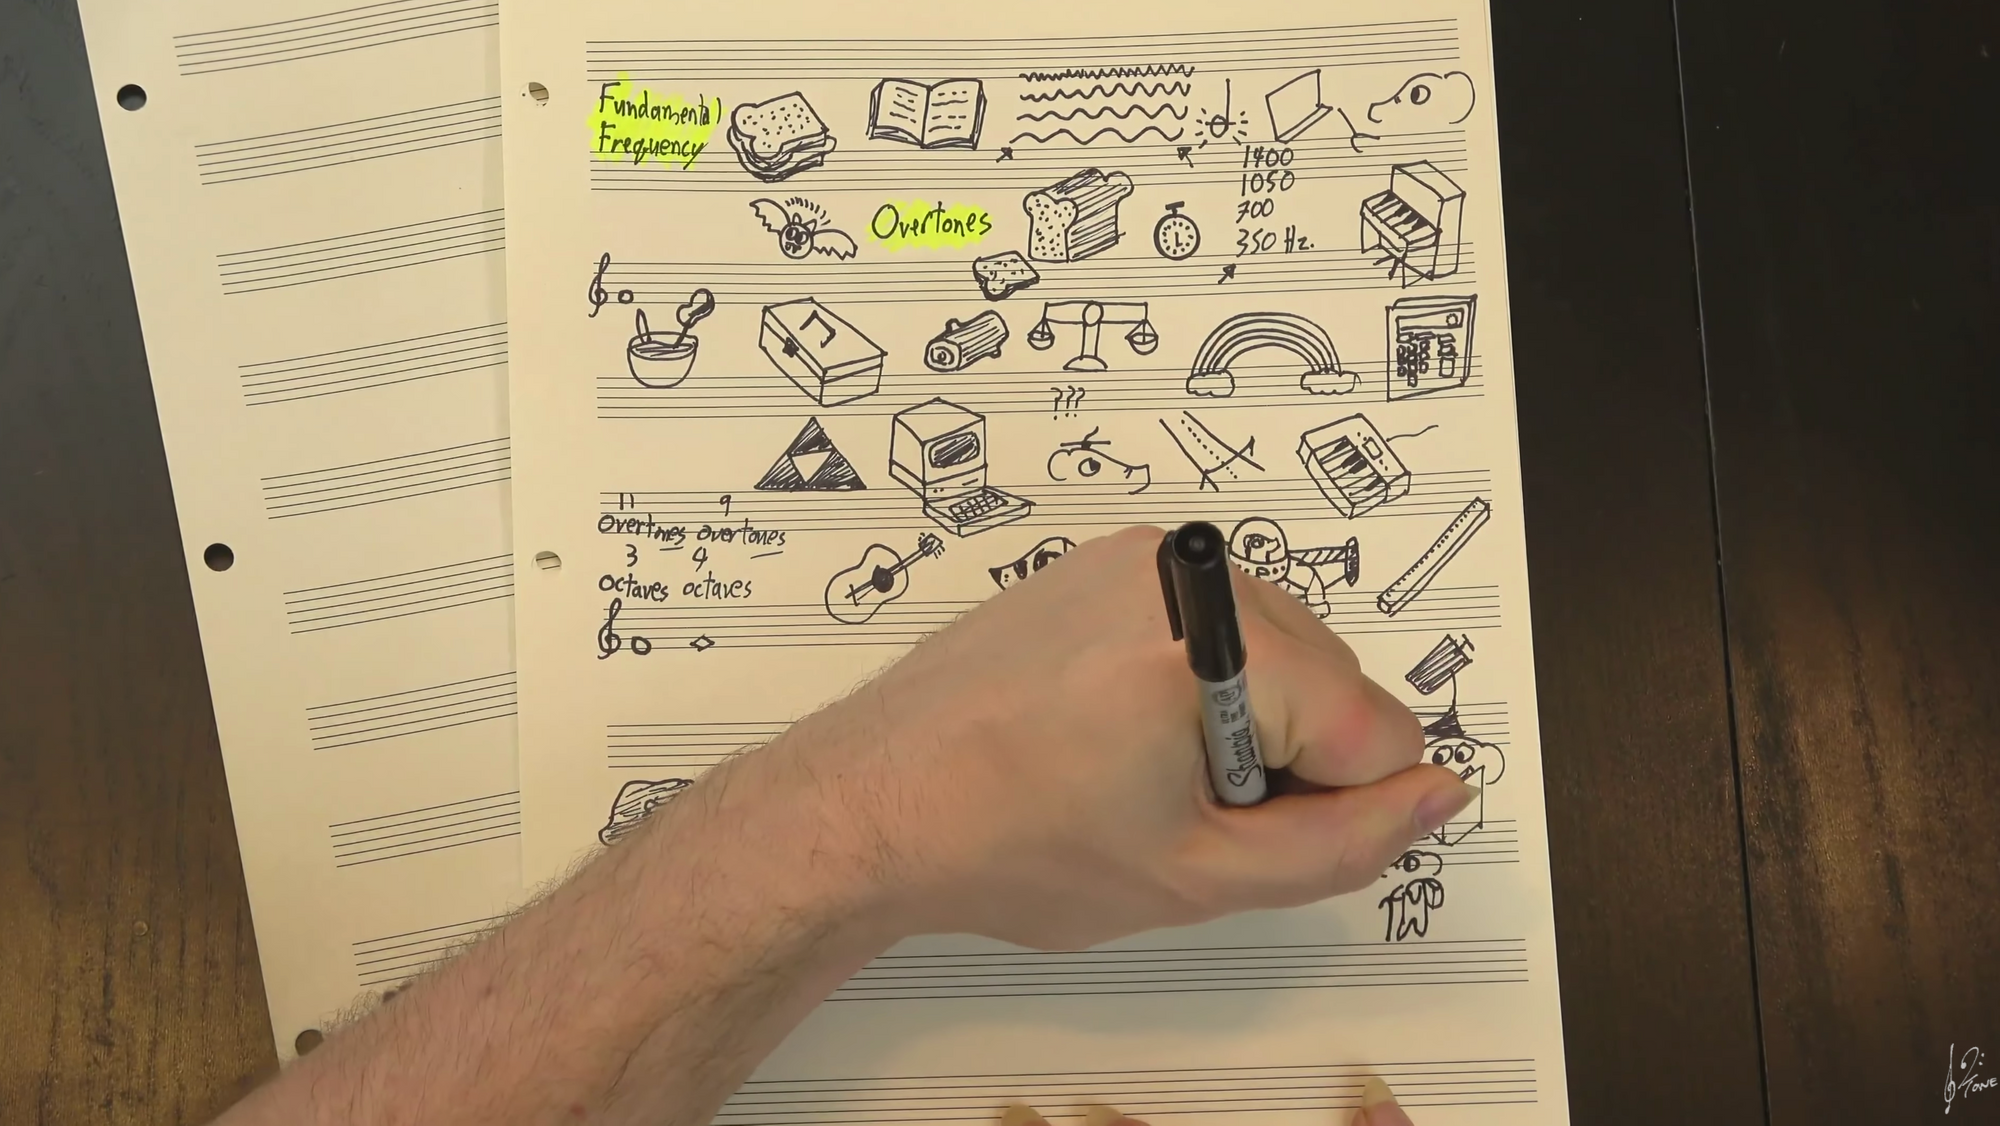 Fundamental
Frequency
1400
1050
700
350 Hz.
Overtones
???
11 9
Overtones overtones
3 4
Octaves octaves
Sharpie
TONE